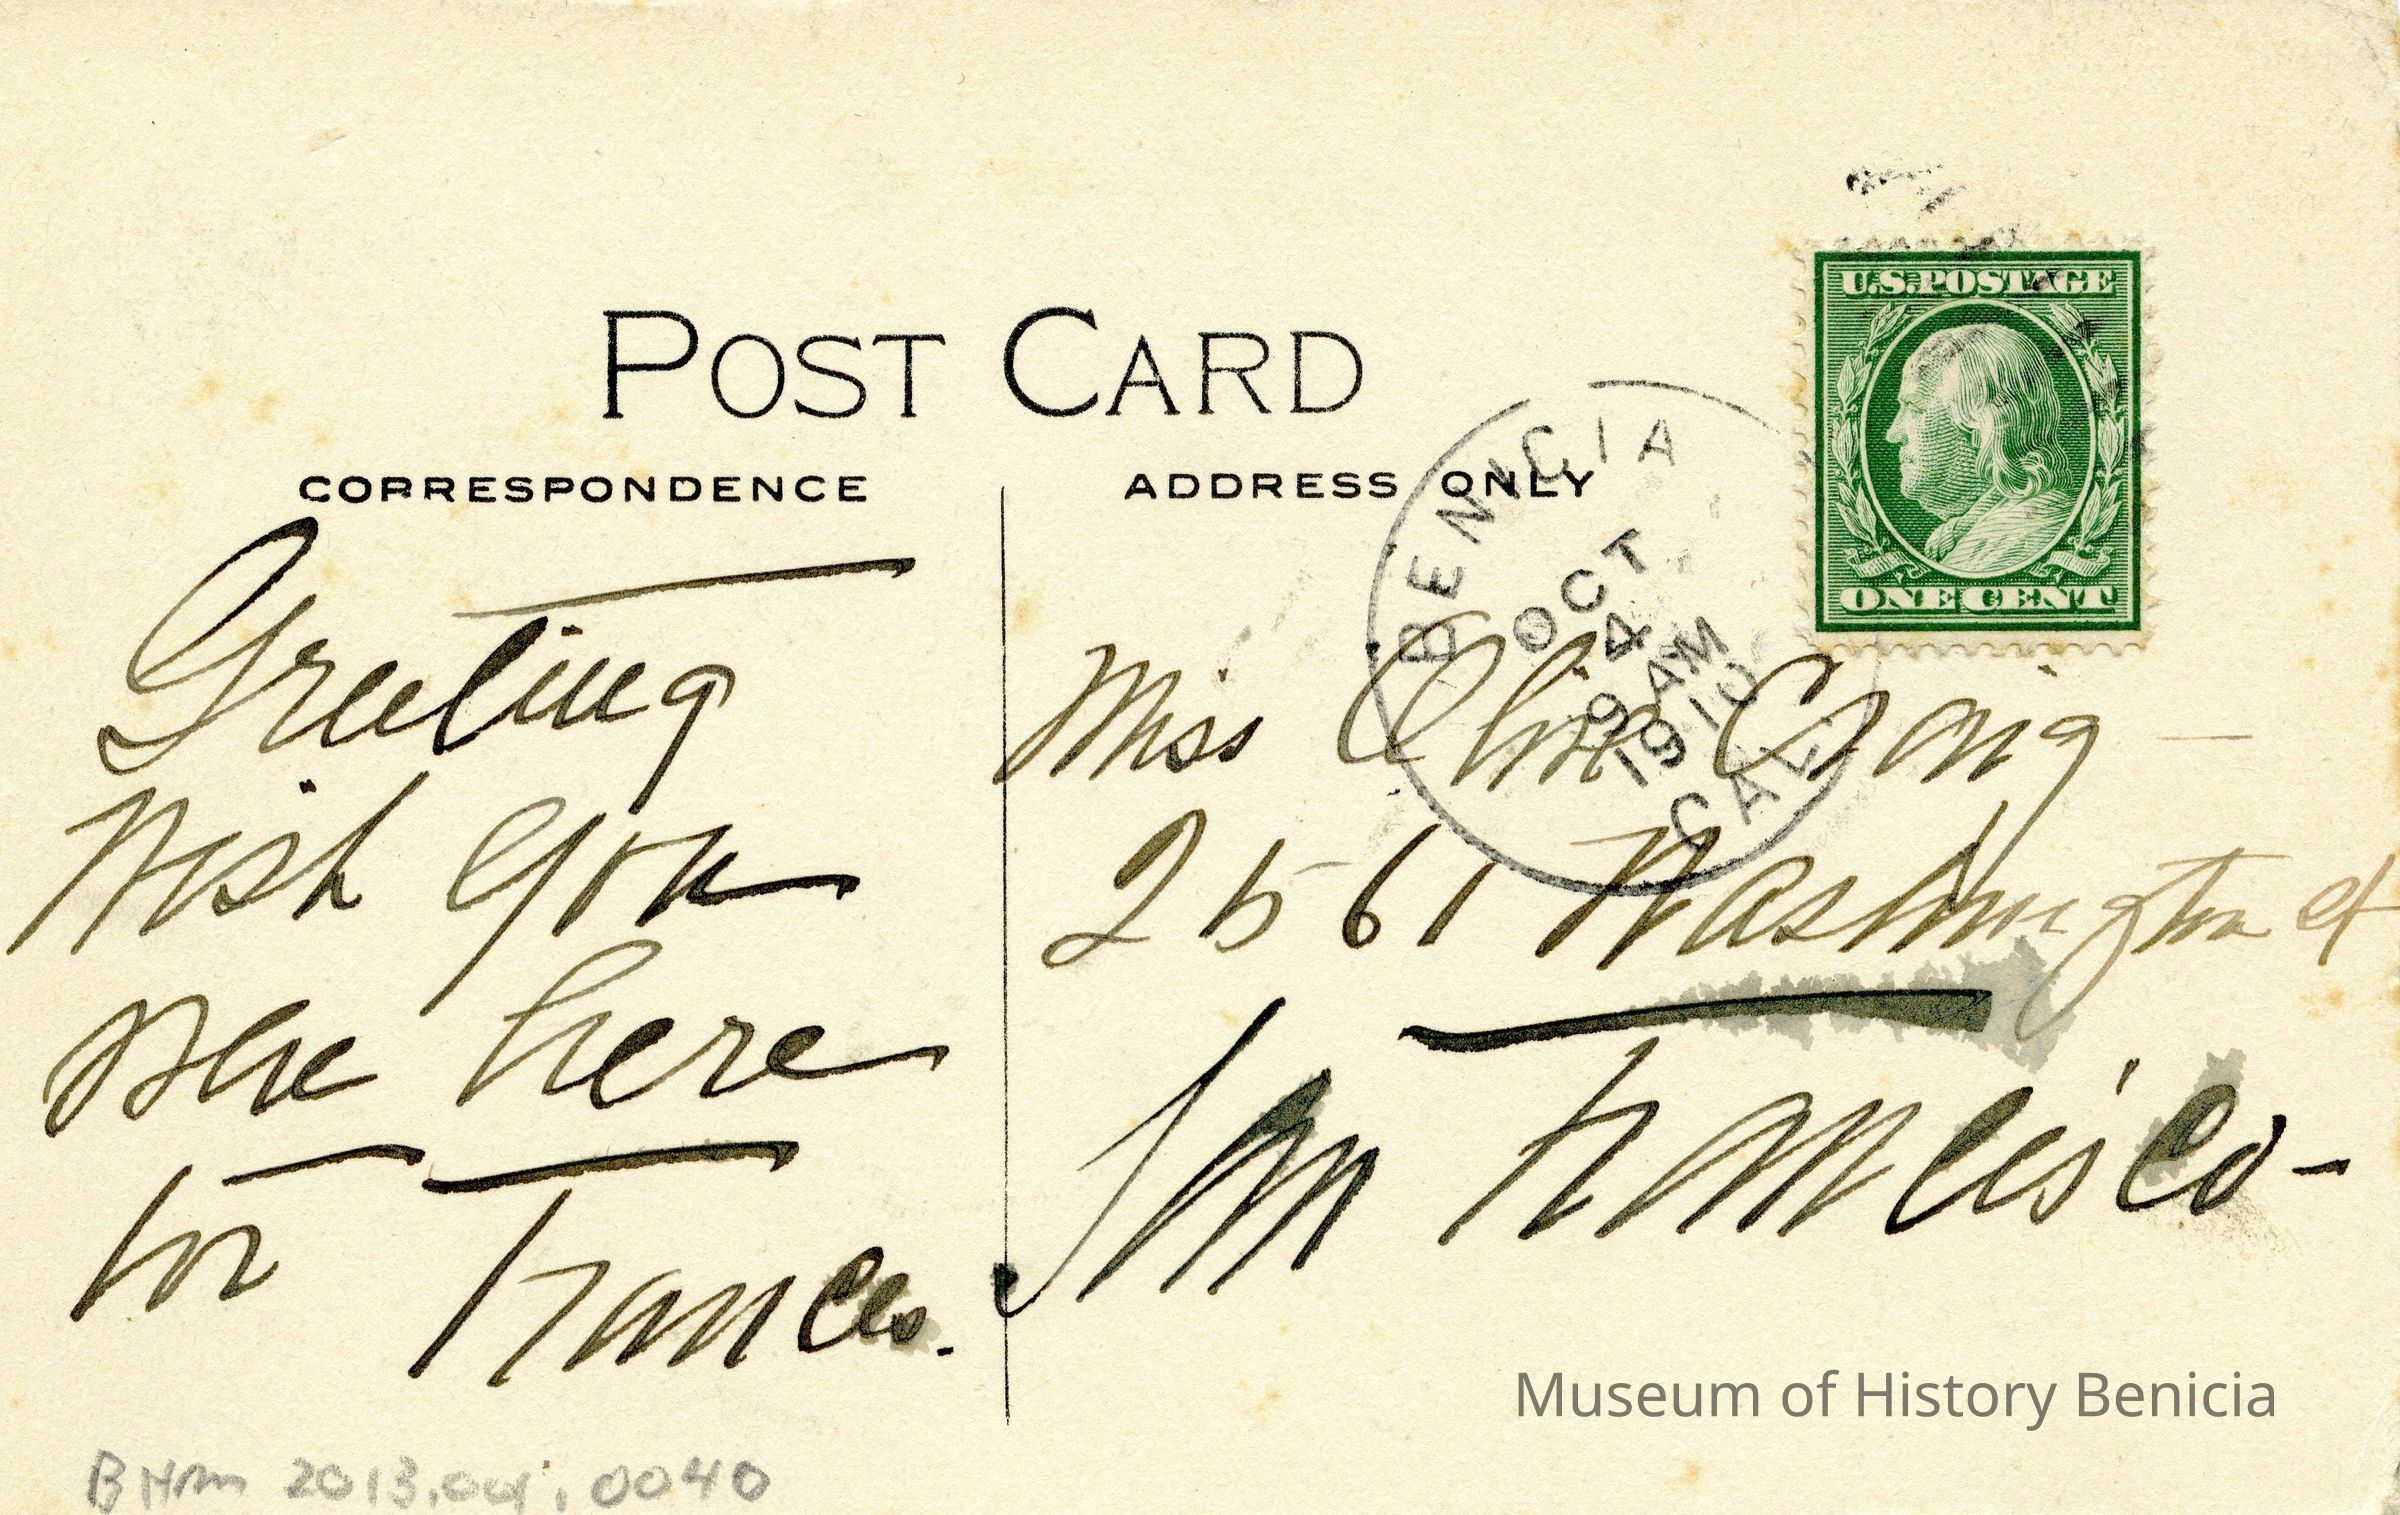 POST CARD
CORRESPONDENCE
ADDRESS ONLY
BENICIA
OCT
4
9 AM
1910
CAL.
U.S. POSTAGE
ONE CENT
Greeting
Wish you
were here
for Frances.
Miss Olive Craig —
2561 Washington st
San Francisco -
Museum of History Benicia
BHM 2013.001.0040